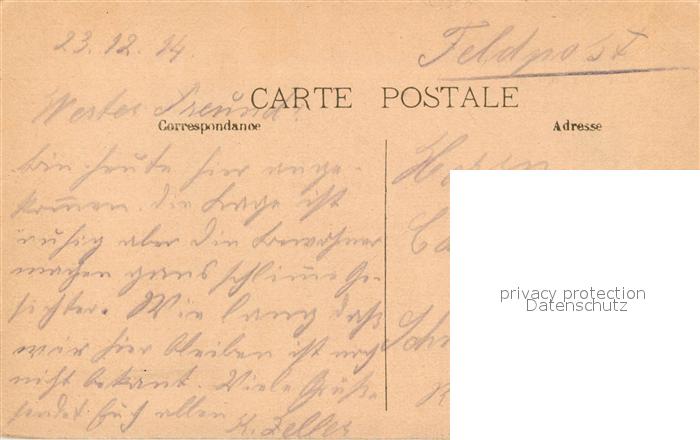 23.12.14.
Feldpost
Werter Freund!
CARTE POSTALE
Correspondance
Adresse
bin heute hier ange-
kommen. die Lage ist
ruhig aber die Bewohner
machen ganz schlimme Ge-
sichter. Wie lang daß
wir hier bleiben ist noch
nicht bekant. Viele Grüße
sendet Euch allen
K. Zeller
Herrn
privacy protection
Datenschutz